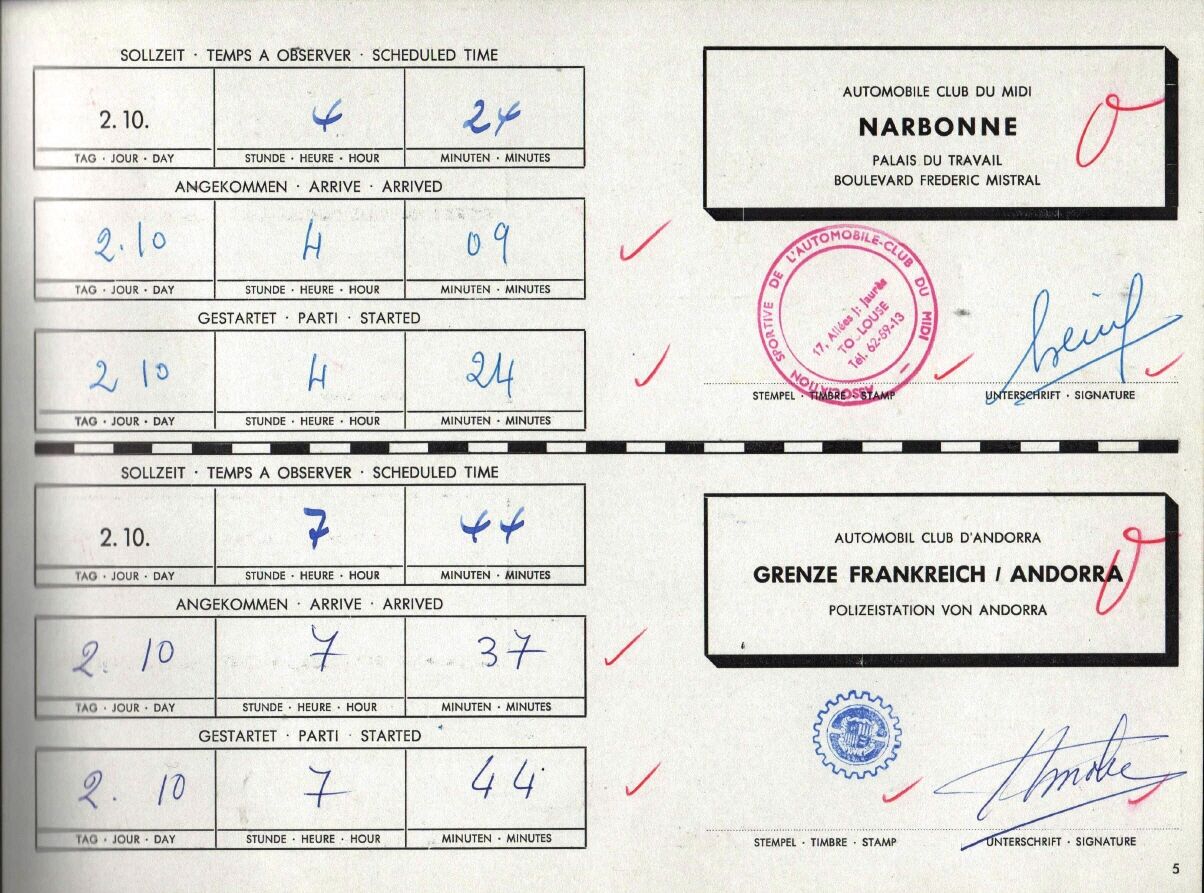 SOLLZEIT · TEMPS A OBSERVER · SCHEDULED TIME
2.10. 4 24
TAG · JOUR · DAY STUNDE · HEURE · HOUR MINUTEN · MINUTES
ANGEKOMMEN · ARRIVE · ARRIVED
2.10 4 09
TAG · JOUR · DAY STUNDE · HEURE · HOUR MINUTEN · MINUTES
GESTARTET · PARTI · STARTED
2 10 4 24
TAG · JOUR · DAY STUNDE · HEURE · HOUR MINUTEN · MINUTES
AUTOMOBILE CLUB DU MIDI
NARBONNE
PALAIS DU TRAVAIL
BOULEVARD FREDERIC MISTRAL
0
ASSOCIATION SPORTIVE DE L'AUTOMOBILE-CLUB DU MIDI
17, Allées J. Jaurès
TOULOUSE
Tél. 62-59-13
STEMPEL · TIMBRE · STAMP UNTERSCHRIFT · SIGNATURE
SOLLZEIT · TEMPS A OBSERVER · SCHEDULED TIME
2.10. 7 44
TAG · JOUR · DAY STUNDE · HEURE · HOUR MINUTEN · MINUTES
ANGEKOMMEN · ARRIVE · ARRIVED
2. 10 7 37
TAG · JOUR · DAY STUNDE · HEURE · HOUR MINUTEN · MINUTES
GESTARTET · PARTI · STARTED
2. 10 7 44
TAG · JOUR · DAY STUNDE · HEURE · HOUR MINUTEN · MINUTES
AUTOMOBIL CLUB D'ANDORRA
GRENZE FRANKREICH / ANDORRA
POLIZEISTATION VON ANDORRA
0
STEMPEL · TIMBRE · STAMP UNTERSCHRIFT · SIGNATURE
5